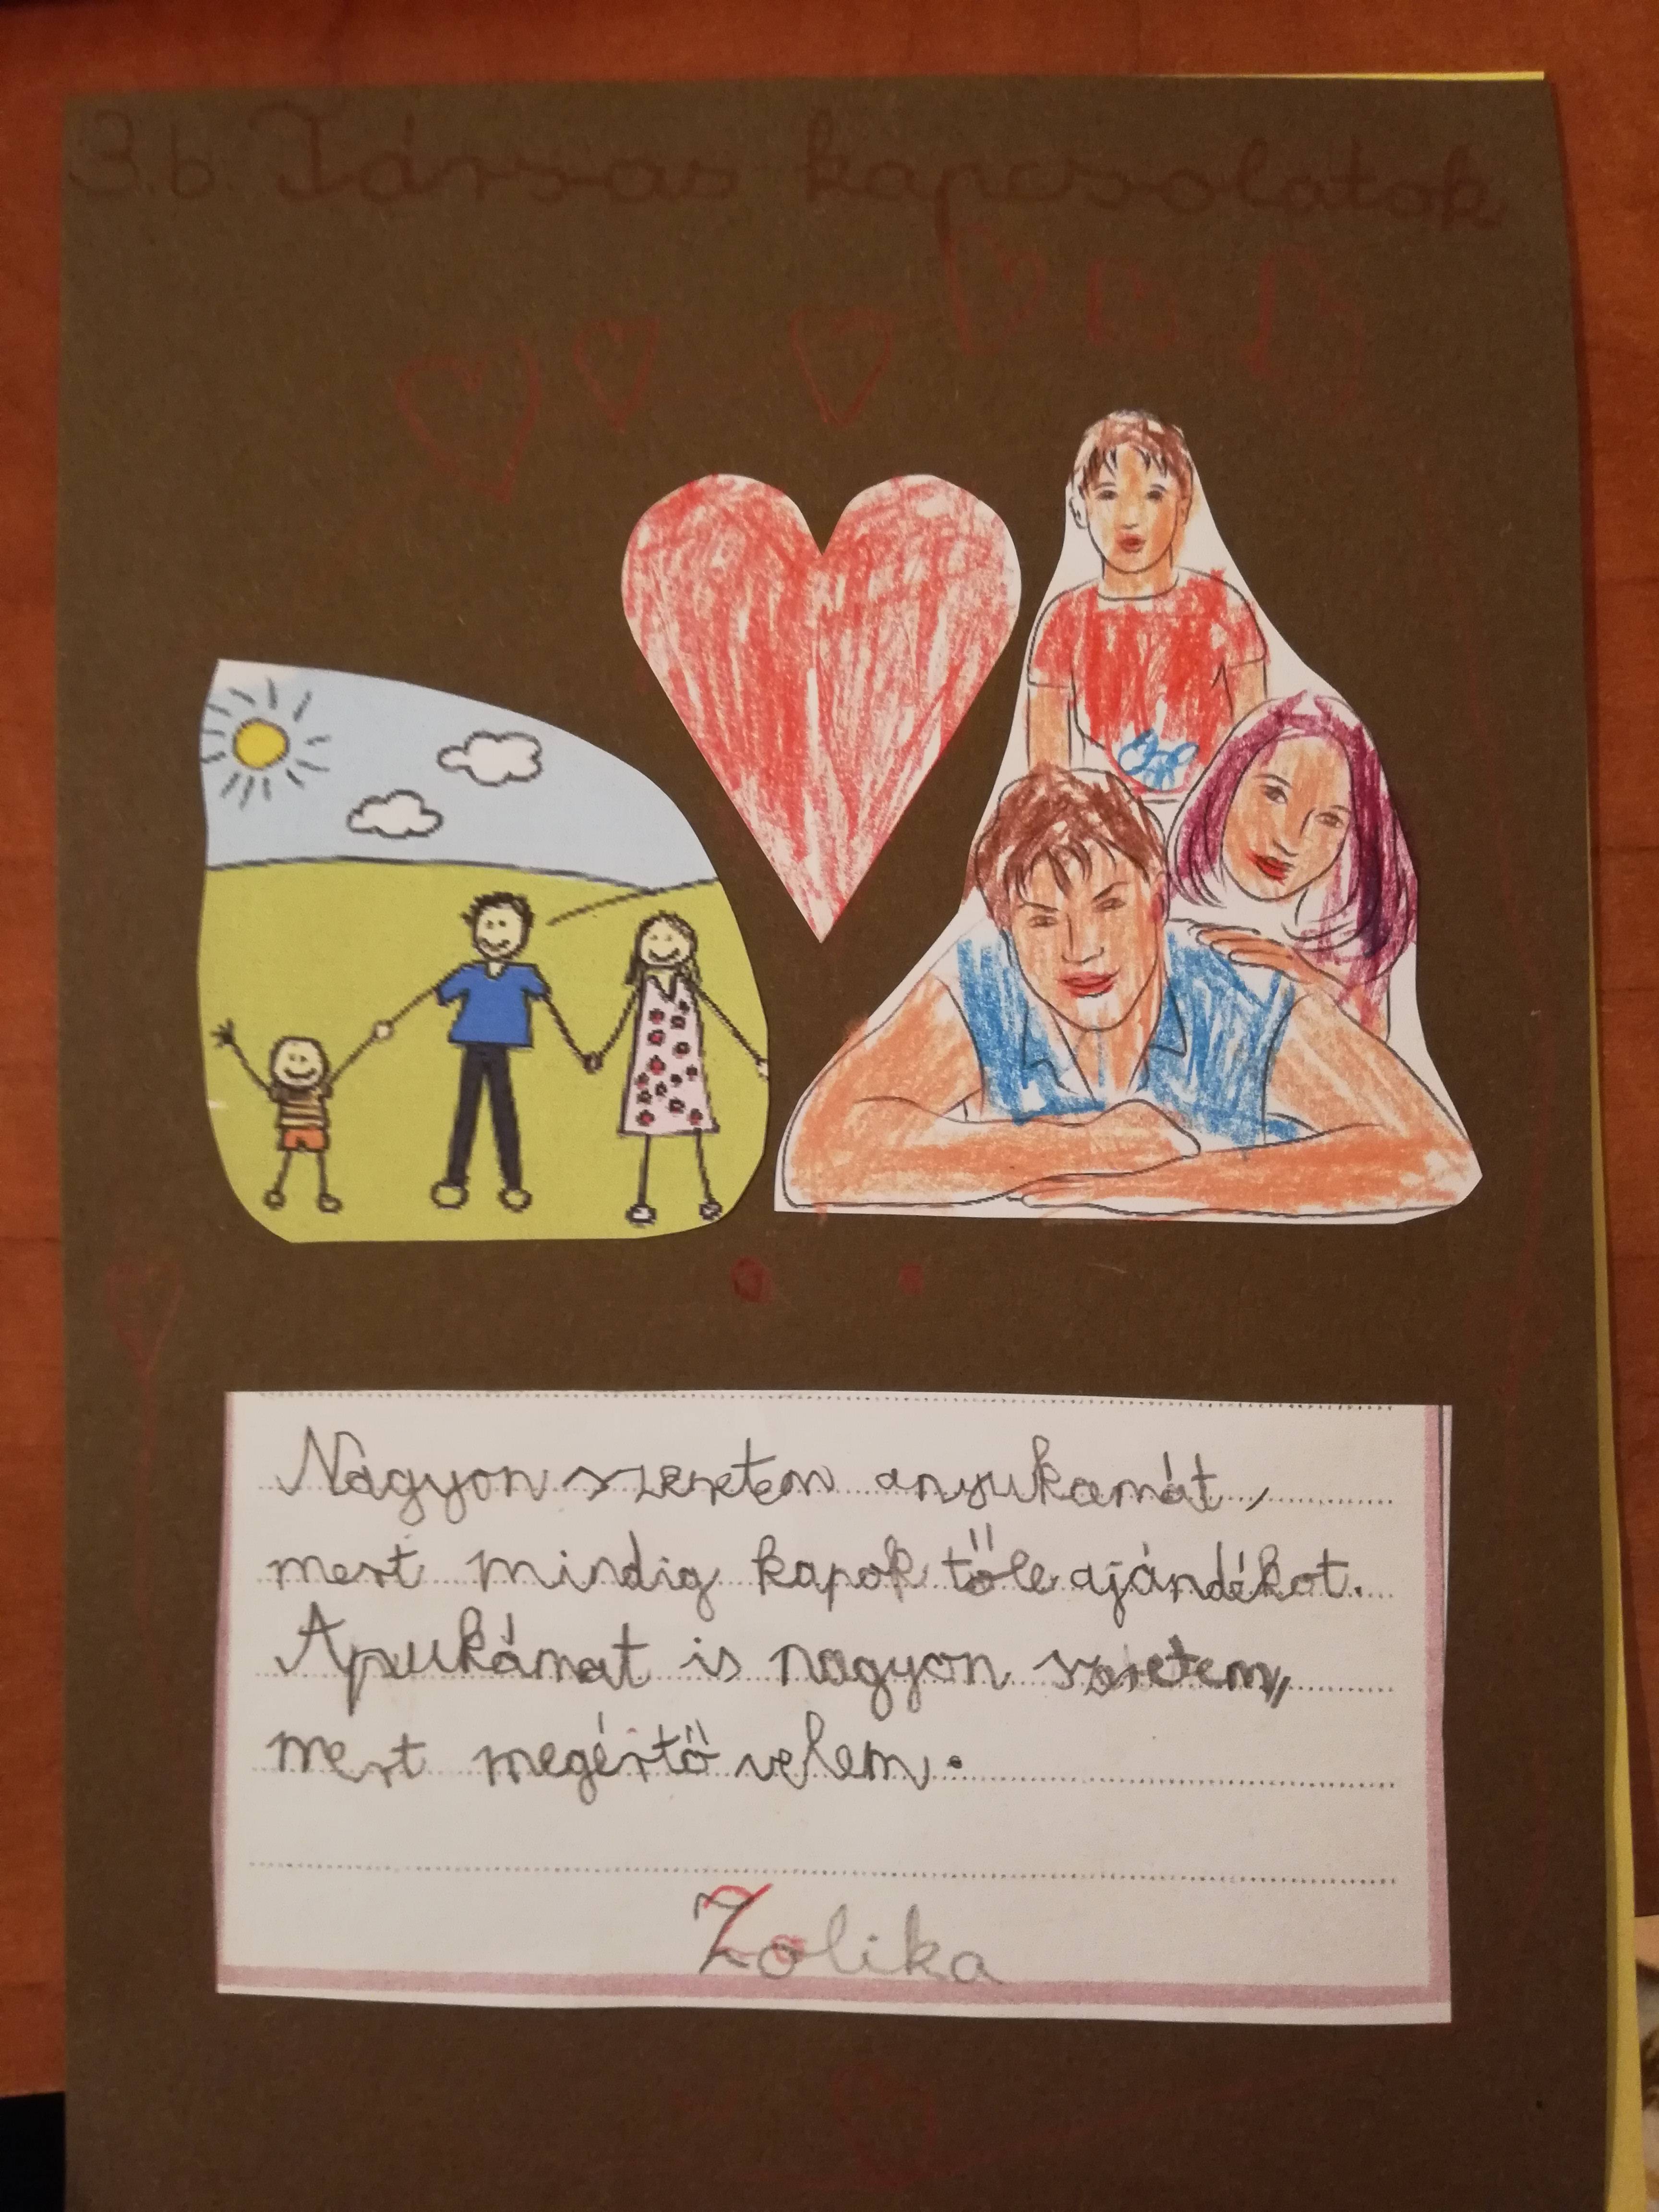 3.b. Társas kapcsolatok
Nagyon szeretem anyukamát,
mert mindig kapok tőle ajándékot.
Apukámat is nagyon szeretem,
mert megértő velem.
Zolika